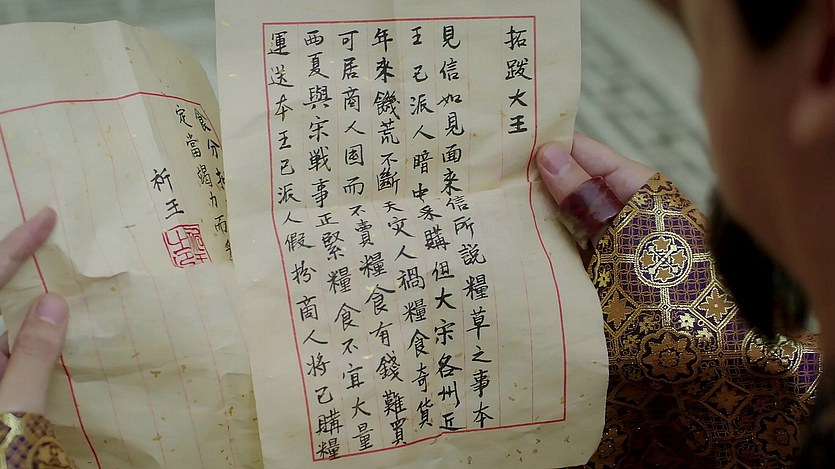 拓跋大王
見信如見面來信所說糧草之事本
王已派人暗中采購但大宋各州近
年來饑荒不斷天灾人禍糧食奇貨
可居商人因而不賣糧食有錢難買
西夏與宋戦事正緊糧食不宜大量
運送本王已派人假扮商人將已購糧
食分
定當竭力而
祈王